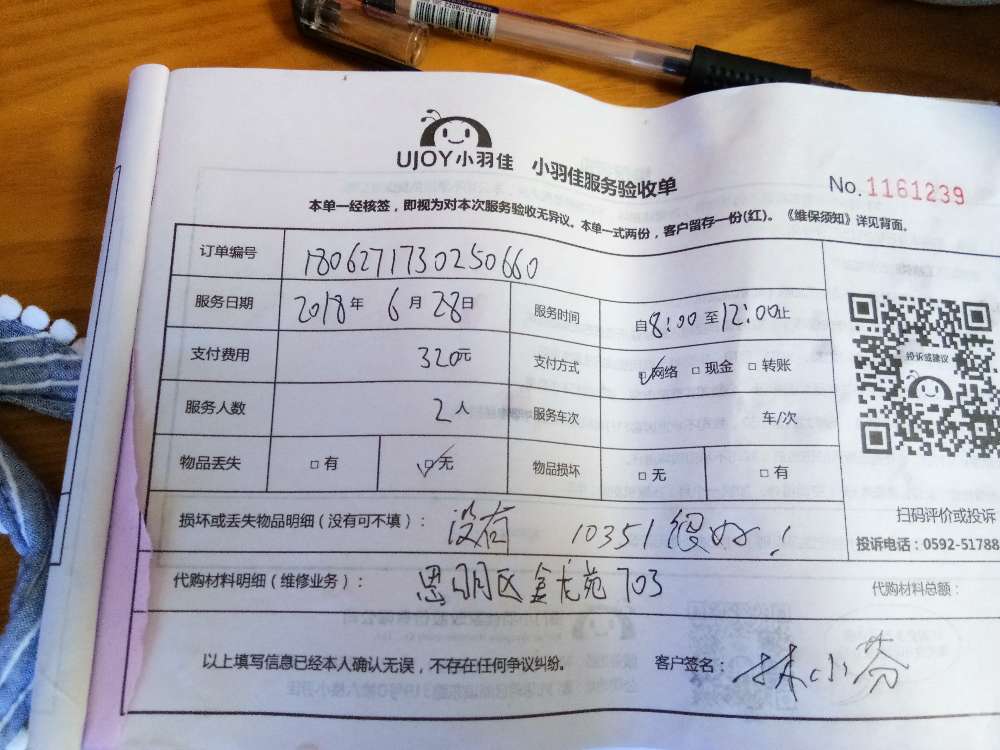 UJOY小羽佳 小羽佳服务验收单
No.1161239
本单一经核签，即视为对本次服务验收无异议。本单一式两份，客户留存一份(红)。《维保须知》详见背面。
订单编号 1806271730250660
服务日期 2018年 6月 28日 服务时间 自8:00至12:00止
支付费用 320元 支付方式 ☑网络 □现金 □转账
服务人数 2人 服务车次 车/次
物品丢失 □有 ☑无 物品损坏 □无 □有
投诉或建议
扫码评价或投诉
投诉电话：0592-51788
损坏或丢失物品明细（没有可不填）： 没有 10351 很好！
代购材料明细（维修业务）： 思明区金龙苑703 代购材料总额：
以上填写信息已经本人确认无误，不存在任何争议纠纷。 客户签名：林小芬